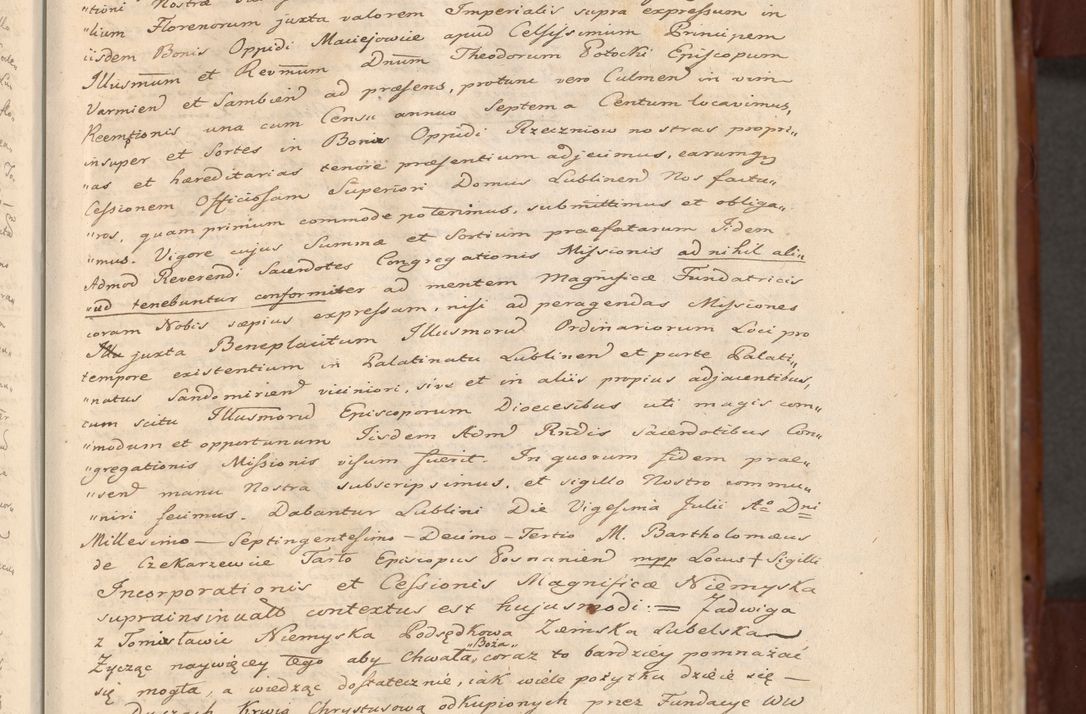 "lium Florenorum juxta valorem Imperialis supra expressum in
iisdem Bonis Oppidi Maciejowice apud Celsissimum Principem
Illusmum et Revmum Dnum Theodorum Potocki Episcopum
Varmien et Sambien ad præsens, protunc vero Culmen in vim
Reemptionis una cum Censu annuo Septem a Centum locavimus,
insuper et Sortes in Bonis Oppidi Rzeczniow nostras propri„
"as et hæreditarias tenore præsentium adjecimus, earumq
Cessionem Officiosam Superiori Domus Lublinen Nos factu„
"ros, quam primum commode poterimus, submittimus et obliga„
"mus. Vigore cujus Summæ et Sortium præfatarum Iidem
Admod Reverendi Sacerdotes Congregationis Missionis ad nihil ali„
"ud tenebuntur conformiter ad mentem Magnificæ Fundatricis
coram Nobis sæpius expressam, nisi ad peragendas Missiones
juxta Beneplacitum Illusmorum Ordinariorum Loci pro
tempore existentium in Palatinatu Lublinen et parte Palati„
"natus Sandomirien viciniori, sive et in aliis propius adjacentibus,
cum scitu Illusmorum Episcoporum Dioecesibus uti magis com„
"modum et opportunum Iisdem Adm Rndis Sacerdotibus Con„
"gregationis Missionis visum fuerit. In quorum fidem præ„
"sen manu Nostra subscripsimus, et sigillo Nostro commu„
"niri fecimus. Dabantur Lublini Die Vigesima Julii Ao Dni
Millesimo — Septingentesimo – Decimo – Tertio M. Bartholomæus
de Czekarzewice Tarło Episcopus Posnanien mpp Locus † Sigilli
Incorporationis et Cessionis Magnificæ Niemyska
suprainsinuatæ contextus est hujusmodi = Jadwiga
z Tomisławic Niemyska Podsędkowa Ziemska Lubelska
Zycząc naywięcey tego aby Chwała „Boża„ coraz to bardziey pomnażać
się mogła, a wiedząc dostatecznie, iak wiele pożytku dzieie się —
Duszach Krwią Chrystusową odkupionych przez Fundacye WW